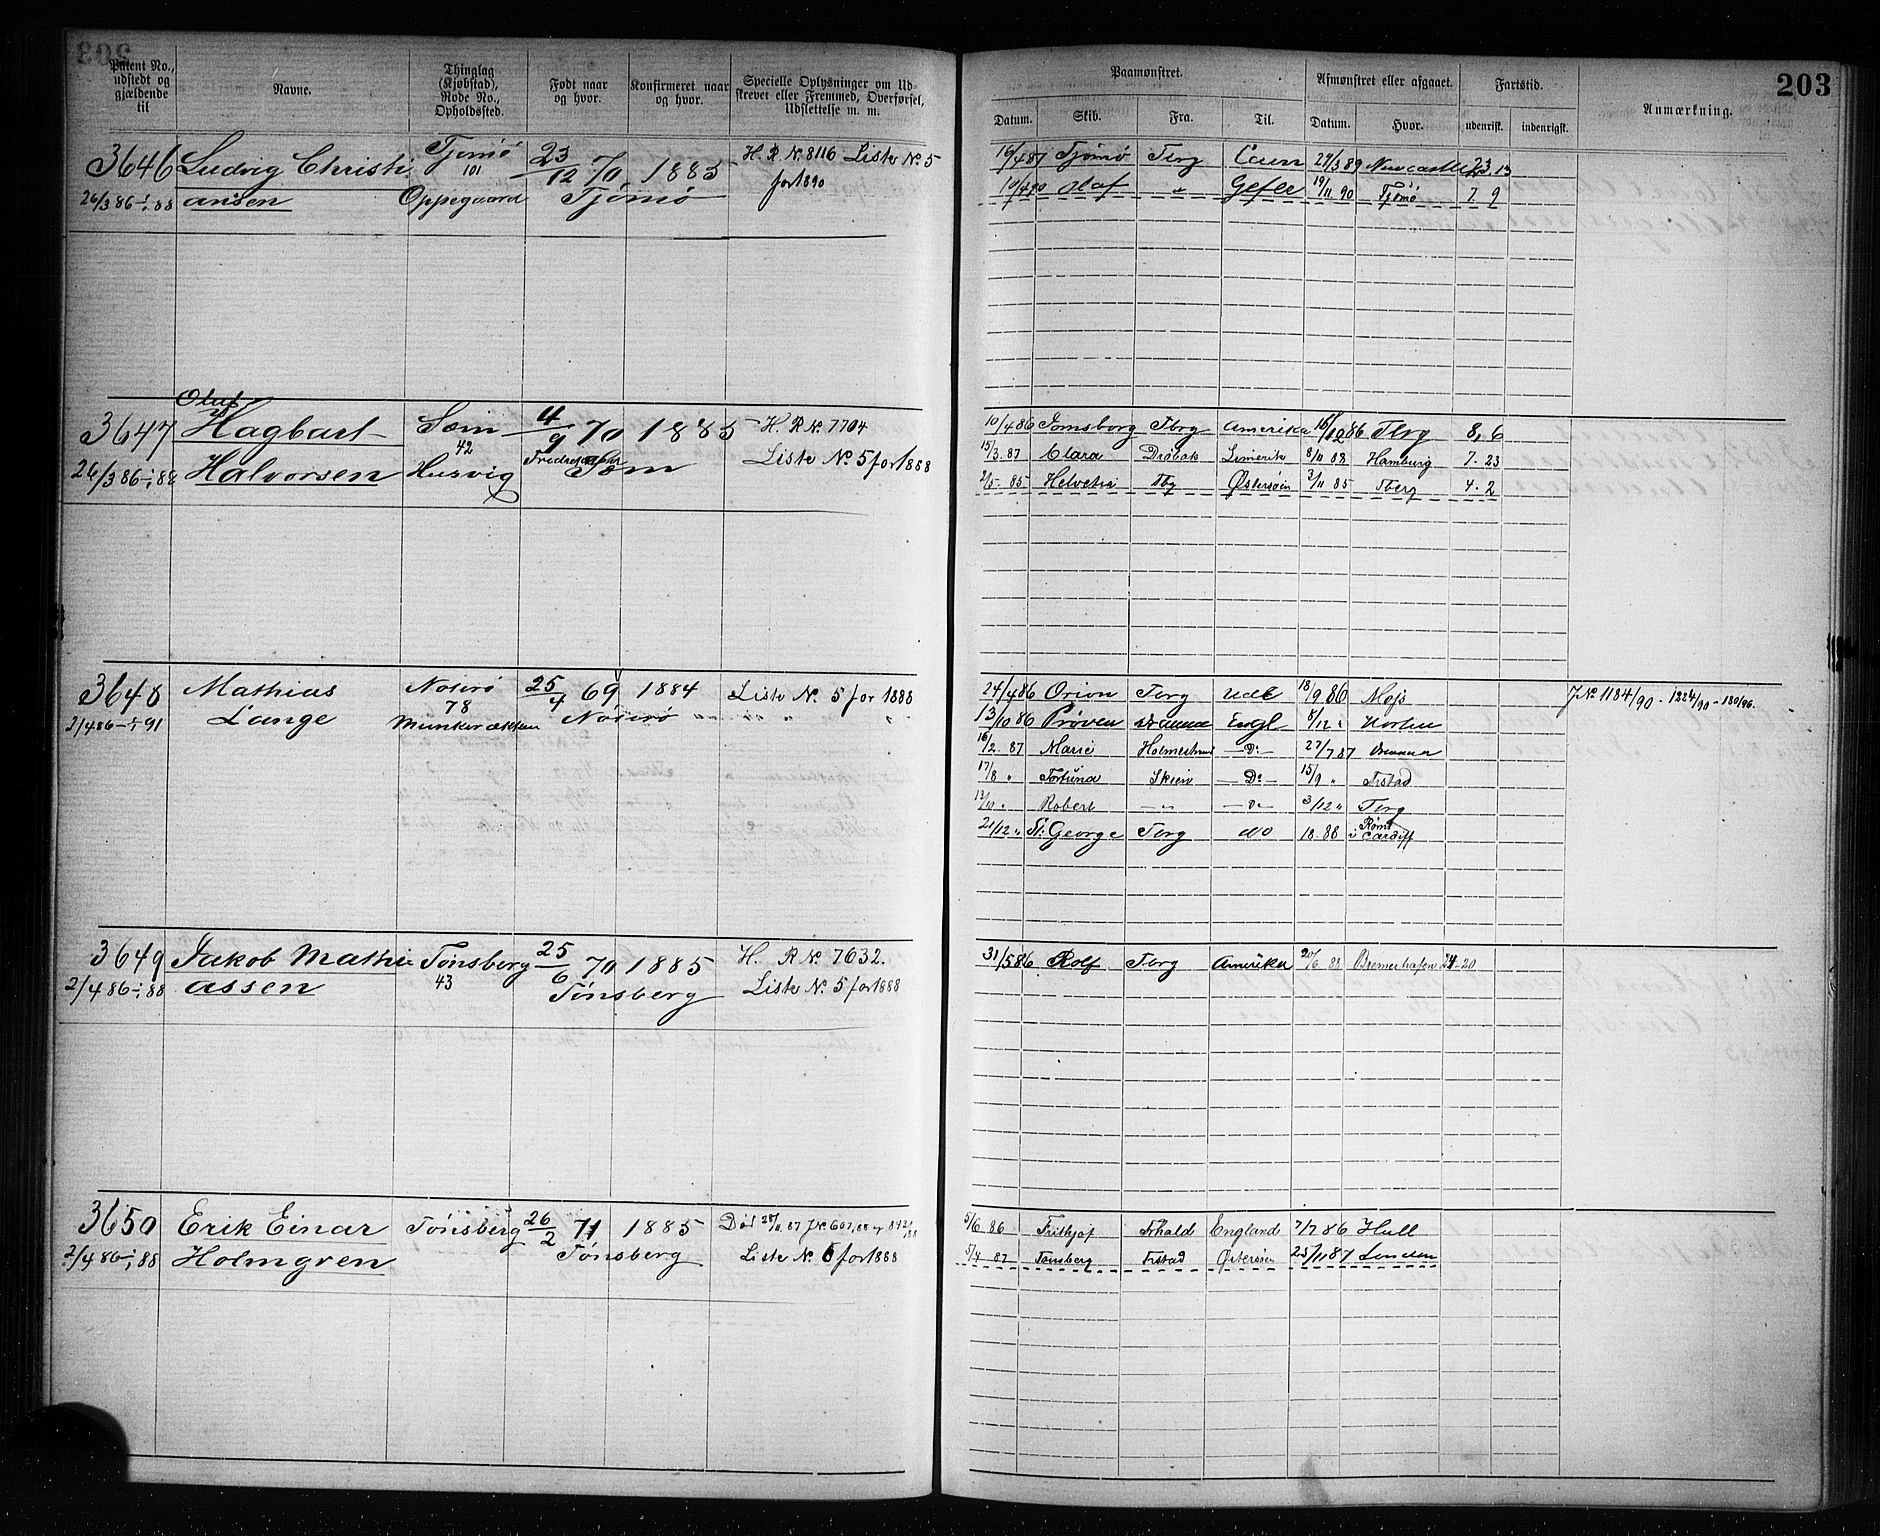 203
Patent No., udstedt og gjældende til
Navne.
Thinglag (Kjøbstad), Rode No., Opholdssted.
Født naar og hvor.
Konfirmeret naar og hvor.
Specielle Oplysninger om Udskrevet eller Fremmed, Overførsel, Udslettelse m. m.
Paamønstret.
Afmønstret eller afgaaet.
Fartstid.
Anmærkning.
Datum. Skib. Fra. Til. Datum. Hvor. udenrigsk. indenrigsk.
3646 Ludvig Christi Tjømø 23/12 70 1885 H. R. No. 8116 Liste No. 5
26/3 86 - 1/1 88 ansen 101 Oppegaard Tjømø for 1890
19/4 87 Tjømø Tbrg Caen 29/3 89 Newcastle 23 13
10/4 90 Olaf " Gefle 19/11 90 Tjømø 7. 9
Olaf
3647 Hagbart Sem 4/9 70 1885 H. R No. 7704
26/3 86 - 1/1 88 Halvorsen 42 Husvig Sem Liste No. 5 for 1888
10/4 86 Jomsborg Tbrg Amerika 16/12 86 Tbrg 8, 6
15/3. 87 Clara Drøbak Limerik 8/11 88 Hamburg 7. 23
2/5- 85 Helvetia Tbg Østersøen 3/11 85 Tberg 4. 2
3648 Mathias Nøterø 25/4 69 1884 Liste No. 5 for 1888
2/4 86 - 1/1 91 Lange 78 Munkerækken Nøterø
24/4 86 Orion Tbrg Udl 18/9 86 Moss J No 1184/90 - 1224/90 - 180/96.
13/10 86 Prøven Dramme Engl 8/12 " Horten
16/2. 87 Marie Holmestrand Do 27/7 87 Drammen
17/8 " Fortuna Skien Do 15/9 " Frstad
13/10 " Robert " Do 3/12 " Tbrg
21/12 " St. George Tbrg do 18. 88 Rømt i Cardiff
3649 Jakob Mathi Tønsberg 25/6 70 1885 H. R No. 7632.
2/4 86 - 1/1 88 assen 43 Tønsberg Liste No. 5 for 1888
31/5 86 Rolf Tbrg Amerika 20/6 88 Bremerhafen 24-20
3650 Erik Einar Tønsberg 26/2 71 1885 Død 25/11 87 J No 607/88
2/4 86 - 1/1 88 Holmgren Tønsberg Liste No. 5 for 1888
5/6 86 Frithjof Frhald England 7/7 86 Hull
5/4 87 Tønsberg Frstad Østersøen 25/11 87 London